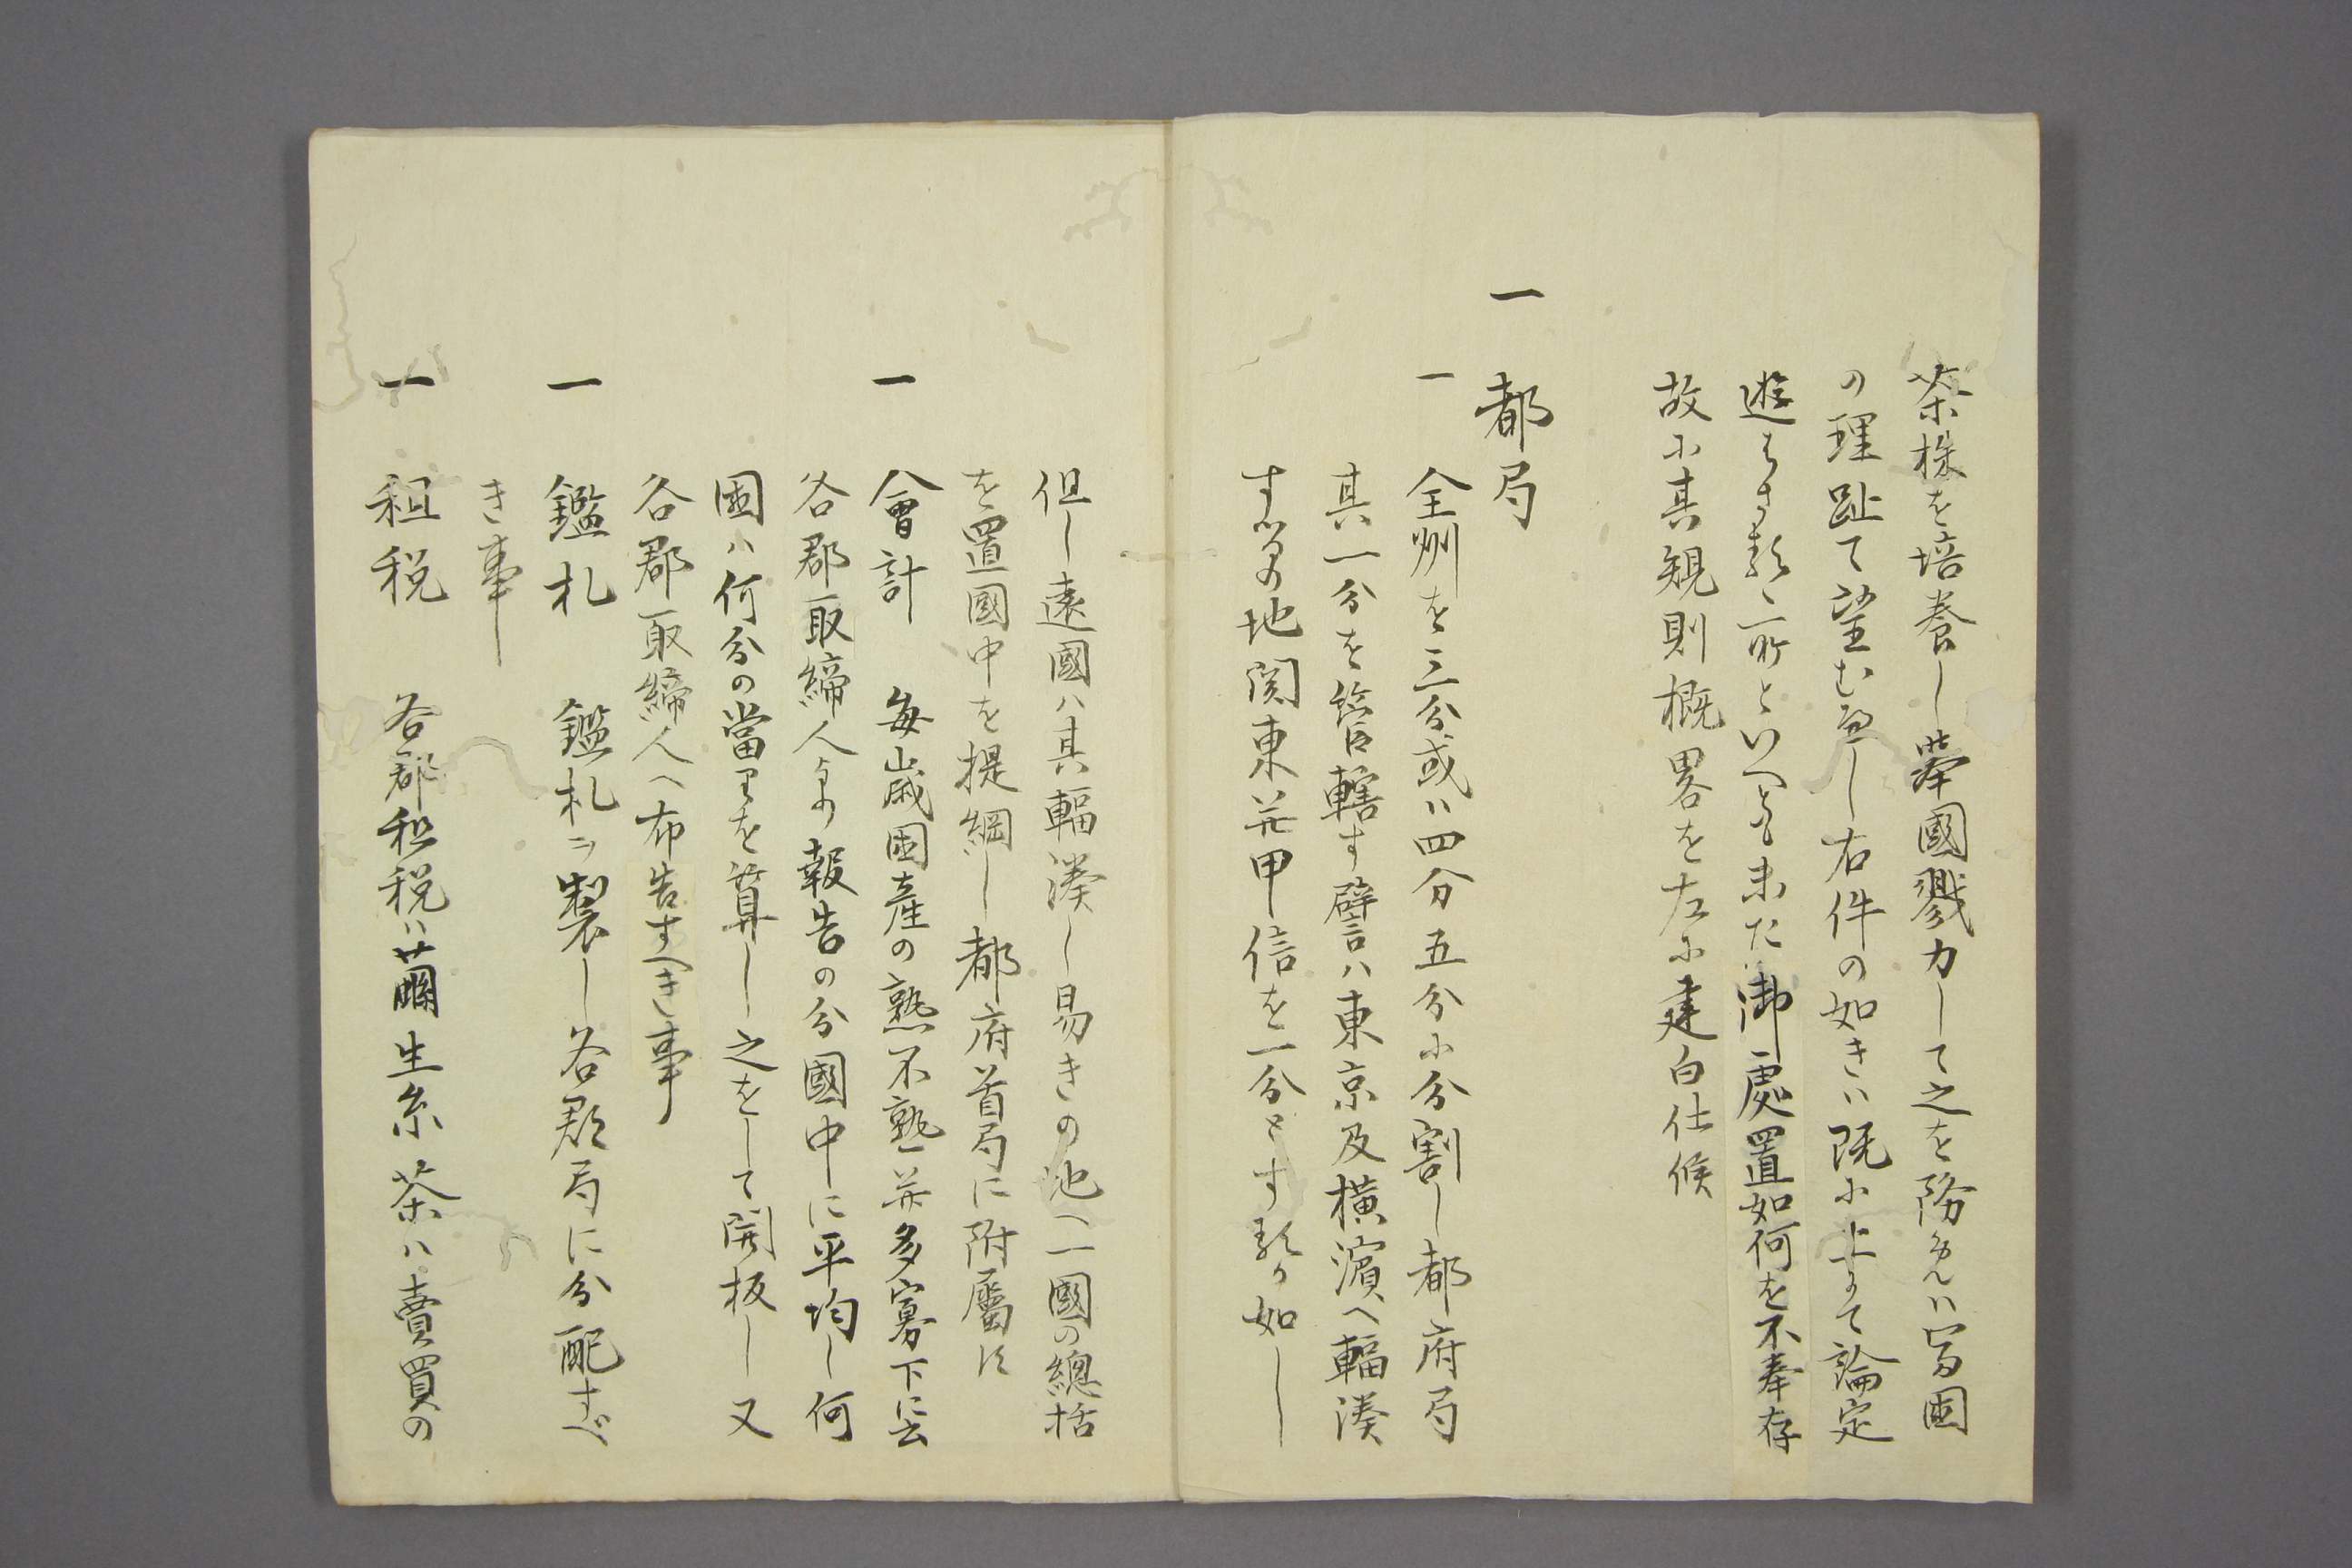 茶株を培養し挙國戮力して之を務免ハ富国
の理趾て望むへし右件の如きハ既に上にて論定
遊はさる所といへとも未た御處置如何を不奉存
故に其規則概畧を左に建白仕候
一 都局
一 全州を三分或ハ四分五分に分割し都府局
其一分を管轄す譬ハ東京及横濱へ輻湊
するの地関東並甲信を一分とするか如し
但し遠國ハ其輻湊し易きの地へ一國の總括
を置國中を提綱し都府首局に附屬す
一 會計 毎歳国産の熟不熟並多寡下に云
各郡取締人より報告の分國中に平均し何
国ハ何分の當りを算し之をして開板し又
各郡取締人へ布告すへき事
一 鑑札 鑑札ヲ製し各郡局に分配すべ
き事
一 租税 各郡租税ハ繭生糸茶ハ賣買の